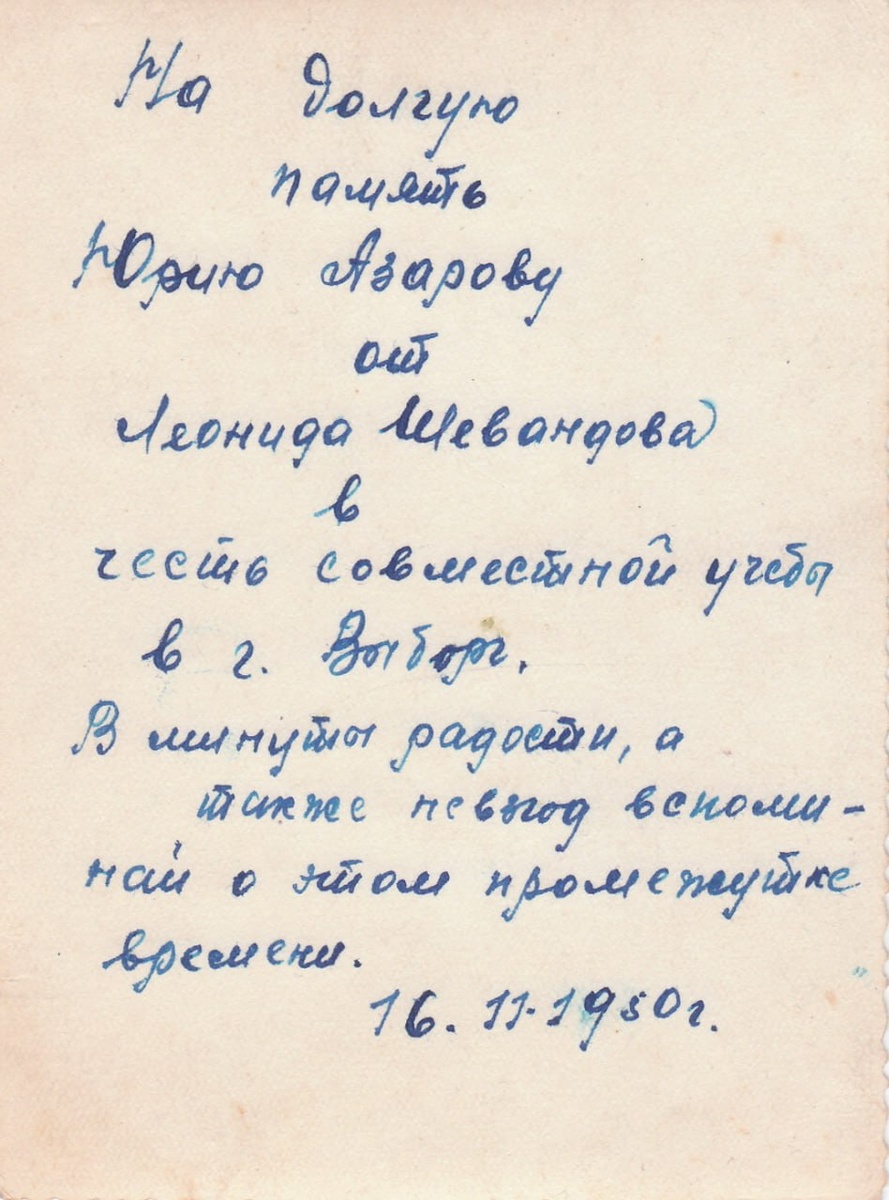 На долгую
память
Юрию Азарову
от
Леонида Шевандова
в
честь совместной учебы
в г. Выборг.
В минуты радости, а
также невзгод вспоми-
най о этом промежутке
времени.
16.11.1950г.